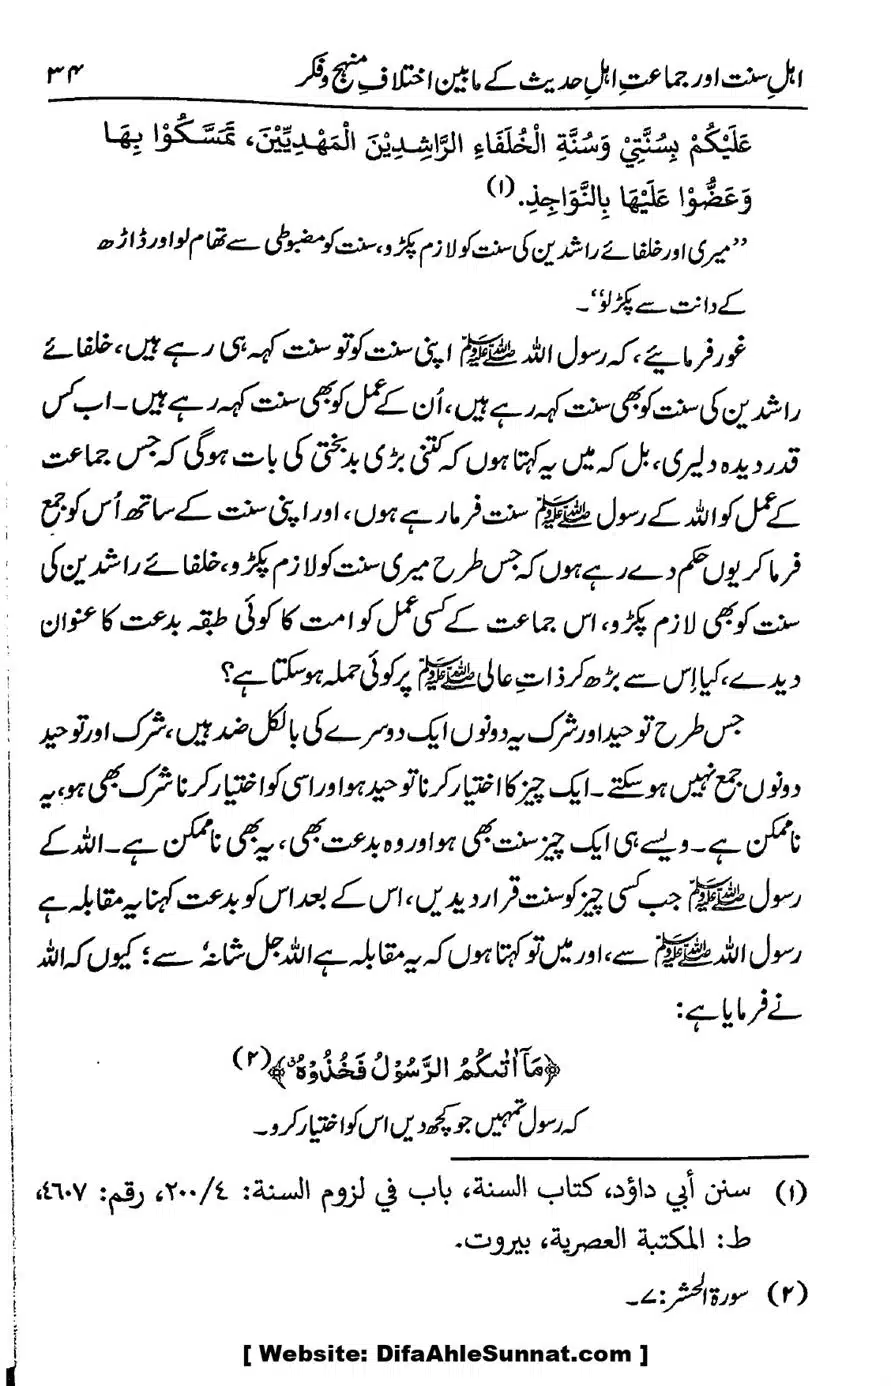 اہلِ سنت اور جماعتِ اہلِ حدیث کے مابین اختلافِ منہج وفکر ۳۴
عَلَيْكُمْ بِسُنَّتِيْ وَسُنَّةِ الْخُلَفَاءِ الرَّاشِدِيْنَ الْمَهْدِيِّيْنَ، تَمَسَّكُوْا بِهَا
وَعَضُّوْا عَلَيْهَا بِالنَّوَاجِذِ.(۱)
’’میری اور خلفائے راشدین کی سنت کو لازم پکڑو، سنت کو مضبوطی سے تھام لو اور ڈاڑھ
کے دانت سے پکڑلو‘‘۔
غور فرمایئے، کہ رسول اللہ ﷺ اپنی سنت کو تو سنت کہہ ہی رہے ہیں، خلفائے
راشدین کی سنت کو بھی سنت کہہ رہے ہیں، اُن کے عمل کو بھی سنت کہہ رہے ہیں۔ اب کس
قدر دیدہ دلیری، بل کہ میں یہ کہتا ہوں کہ کتنی بڑی بدبختی کی بات ہوگی کہ جس جماعت
کے عمل کو اللہ کے رسول ﷺ سنت فرمارہے ہوں، اور اپنی سنت کے ساتھ اُس کو جمع
فرماکر یوں حکم دے رہے ہوں کہ جس طرح میری سنت کو لازم پکڑو، خلفائے راشدین کی
سنت کو بھی لازم پکڑو، اس جماعت کے کسی عمل کو امت کا کوئی طبقہ بدعت کا عنوان
دیدے، کیا اِس سے بڑھ کر ذاتِ عالی ﷺ پر کوئی حملہ ہوسکتا ہے؟
جس طرح توحید اور شرک یہ دونوں ایک دوسرے کی بالکل ضد ہیں، شرک اور توحید
دونوں جمع نہیں ہوسکتے۔ ایک چیز کا اختیار کرنا توحید ہو اور اسی کو اختیار کرنا شرک بھی ہو، یہ
ناممکن ہے۔ ویسے ہی ایک چیز سنت بھی ہو اور وہ بدعت بھی، یہ بھی ناممکن ہے۔ اللہ کے
رسول ﷺ جب کسی چیز کو سنت قرار دیدیں، اس کے بعد اس کو بدعت کہنا یہ مقابلہ ہے
رسول اللہ ﷺ سے، اور میں تو کہتا ہوں کہ یہ مقابلہ ہے اللہ جل شانہٗ سے؛ کیوں کہ اللہ
نے فرمایا ہے:
﴿مَآ اٰتٰىكُمُ الرَّسُوْلُ فَخُذُوْهُ ۚ﴾(۲)
کہ رسول تمہیں جو کچھ دیں اس کو اختیار کرو۔
(۱) سنن أبي داؤد، كتاب السنة، باب في لزوم السنة: ٤/٢٠٠، رقم: ٤٦٠٧،
ط: المكتبة العصرية، بيروت.
(۲) سورۃ الحشر: ۷۔
[ Website: DifaAhleSunnat.com ]